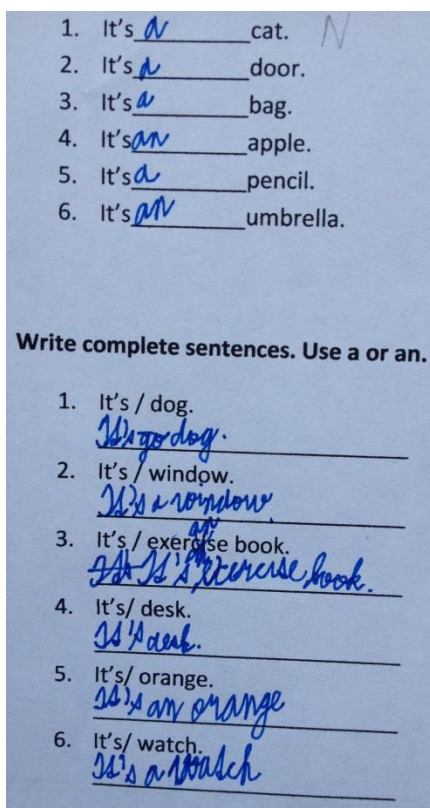 1. It's a cat. N
2. It's a door.
3. It's a bag.
4. It's an apple.
5. It's a pencil.
6. It's an umbrella.
Write complete sentences. Use a or an.
1. It's / dog.
It's go dog.
2. It's / window.
It's a window
3. It's / exercise book.
an
It's exercise book.
4. It's/ desk.
It's desk.
5. It's/ orange.
It's an orange
6. It's/ watch.
It's a watch